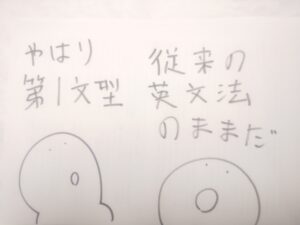 やはり
第1文型
従来の
英文法
のままだ